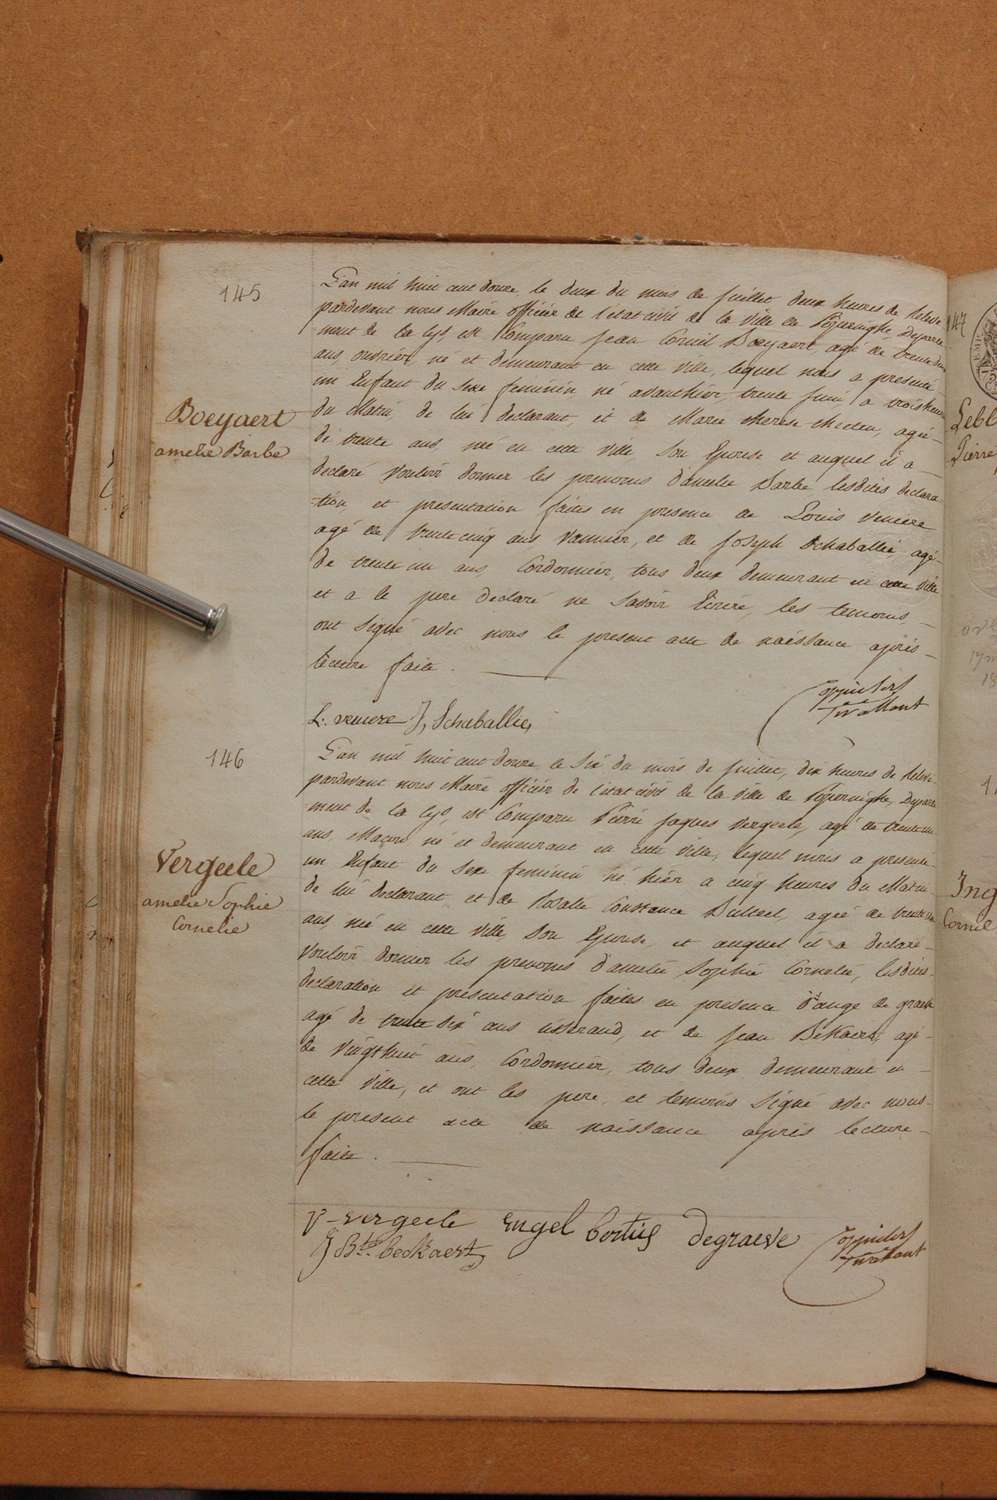 145
L'an mil huit cent douze le deux du mois de juillet deux heures de relevé
pardevant nous Maire officier de l'état civil de la ville de Poperinghe, Departe-
ment de la Lys, est Comparu Jean Corneil Boeyaert, agé de trente deux
ans, ouvrier, né et demeurant en cette ville, lequel nous a presenté
un Enfant du sexe feminin né avanthier trente juin a trois heures
Boeyaert
amelie Barbe
du Matin de lui declarant, et de Marie therese agée
de trente ans, née en cette ville, Son Epouse et auquel il a
declaré Vouloir donner les prenoms d'amelie Barbe lesdites declara
tion et presentation faites en presence de Louis veniere
agé de trente cinq ans, Vannier, et de Joseph Schaballie, agé
de trente un ans Cordonnier, tous deux demeurant en cette ville
et a le pere declaré ne Savoir Ecrire, les temoins
ont Signé avec nous le present acte de naissance après
lecture faite.
L. veniere J, Schaballie,
146
L'an mil huit cent douze le Six du mois de juillet, dix heures de relevé
pardevant nous Maire officier de l'état civil de la ville de Poperinghe, Departe
ment de la Lys, est Comparu Pierre Jaques Vergeele, agé de trente un
ans, Macon né et demeurant en cette ville, lequel nous a presenté
un Enfant du Sexe feminin né hier a cinq heures du Matin
Vergeele
amelie Sophie
Cornelie
de lui declarant, et de Rosalie Constance agée de trente
ans, née en cette ville Son Epouse, et auquel il a declaré
Vouloir donner les prenoms d'amelie Sophie Cornelie, lesdites
declaration et presentation faites en presence d'ange de graeve
agé de trente Six ans et de Jean agé
de Vingt huit ans, Cordonnier, tous deux demeurant en
cette ville, et ont les pere et temoins Signé avec nous
le present acte de naissance après lecture
faite.
vergeele Engel bertus degraeve
J Bte beckaert
147
Lebl
Pierre
Ing
Cornel